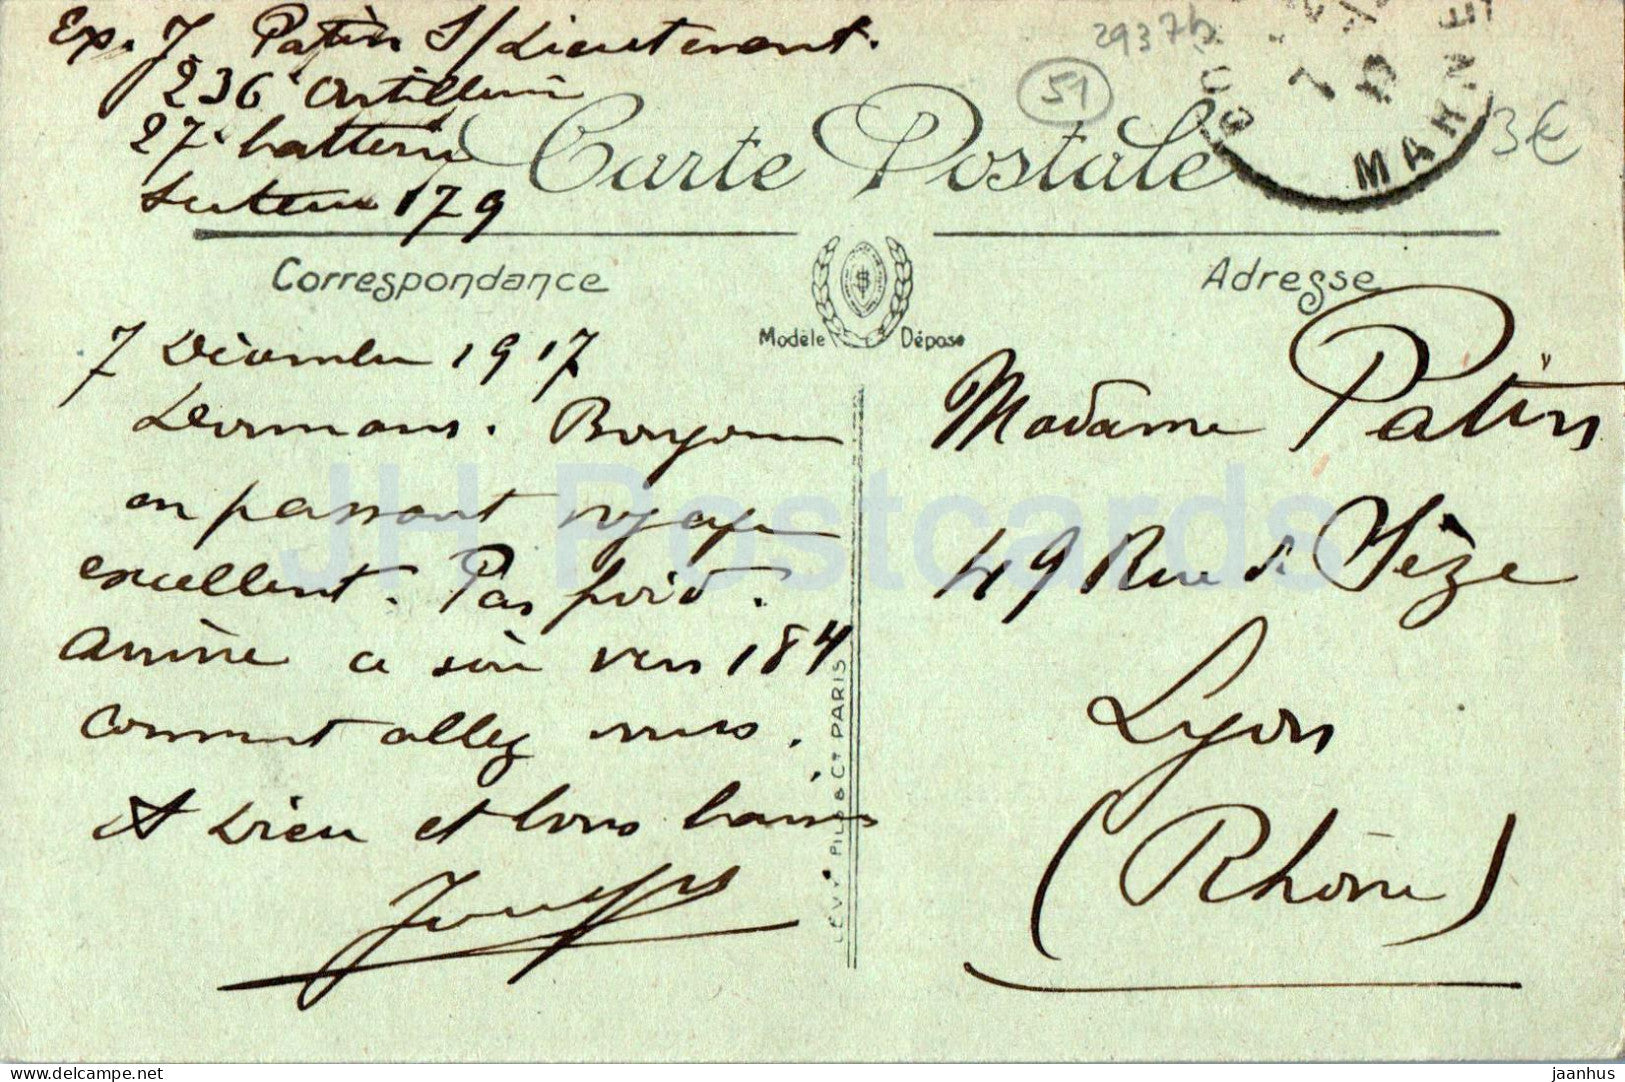 Exp. J. Patin S/Lieutenant.
236e Artillerie
27e batterie
Secteur 179
29376
51
3€
MARNE
Carte Postale
Correspondance
Adresse
Modèle Déposé
7 Décembre 1917
Dormans. Bonjour
en passant voyage
excellent. Pas froid.
Arrive ce soir vers 184
comment allez vous.
A Dieu et bons baisers
Joseph
Madame Patin
49 Rue de Sèze
Lyon
(Rhône)
LÉVY FILS & Cie PARIS
JH Postcards
www.delcampe.net
jaanhus